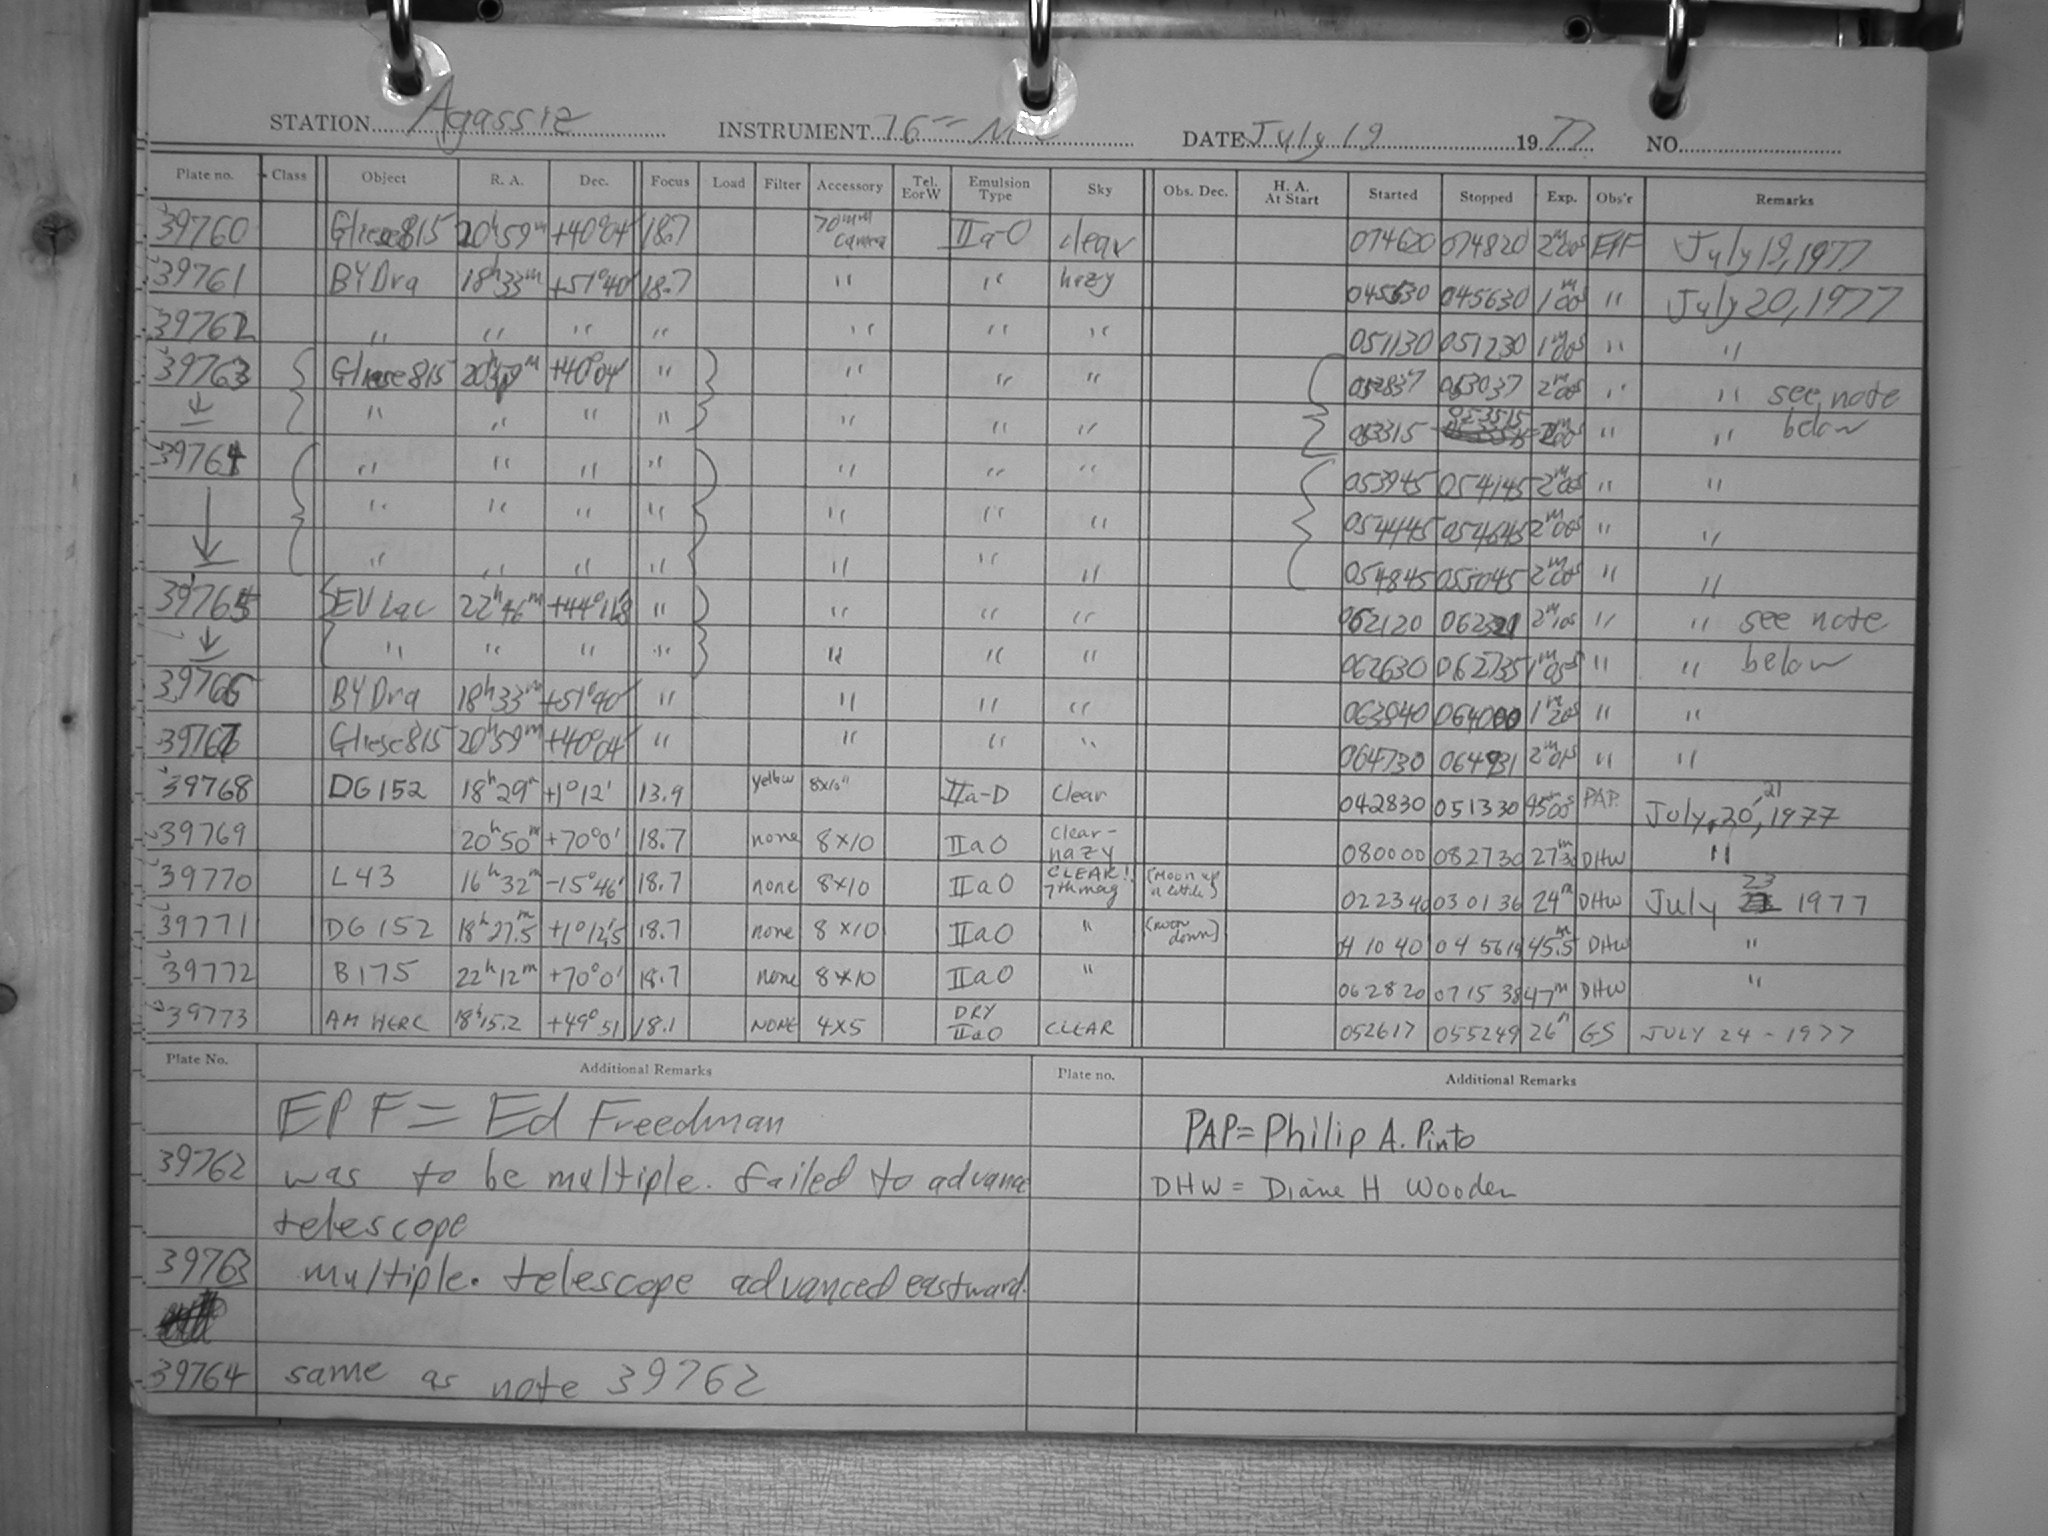 STATION Agassiz INSTRUMENT 16" DATE July 19 1977 NO.
Plate no. Class Object R. A. Dec. Focus Load Filter Accessory Tel. E or W Emulsion Type Sky Obs. Dec. H. A. At Start Started Stopped Exp. Obs'r Remarks
39760 Gliese 815 20h59m +40°04' 18.7 70mm camera IIa-O clear 074620 074820 2m00s EPF July 19, 1977
39761 BY Dra 18h33m +51°40' 18.7 " " hazy 045630 1m00s " July 20, 1977
39762 " " " " " " " 051130 051230 1m00s " "
39763 Gliese 815 20h59m +40°04' " " " " 052837 053037 2m00s " " see note
↓ " " " " " " " 053315 053515 2m00s " " below
39764 " " " " " " " 053945 054145 2m00s " "
" " " " " " " 054445 054645 2m00s " "
↓ " " " " " " " 054845 055045 2m00s " "
39765 EV Lac 22h46m " " " " 062120 2m10s " " see note
↓ " " " " " " " 062630 062735 1m05s " " below
39766 BY Dra 18h33m +51°40' " " " " 063840 064000 1m20s " "
39767 Gliese 815 20h59m +40°04' " " " " 064730 064931 2m01s " "
39768 DG 152 18h29m +1°12' 13.9 yellow 8x10" IIa-D Clear 042830 051330 45m00s PAP July 20, 21 1977
39769 20h50m +70°0' 18.7 none 8x10 IIaO Clear-hazy 080000 082730 27m30 DHW "
39770 L43 16h32m -15°46' 18.7 none 8x10 IIaO CLEAR! 7th mag (Moon up a little) 022340 030136 24m DHW July 23 1977
39771 DG 152 18h27.5m +1°12.5' 18.7 none 8x10 IIaO " (moon down) 041040 045614 45.5m DHW "
39772 B175 22h12m +70°0' 18.7 none 8x10 IIaO " 062820 071538 47m DHW "
39773 AM HERC 18h15.2 +49° 51 18.1 NONE 4x5 DRY IIaO CLEAR 052617 055249 26m GS JULY 24 - 1977
Plate No. Additional Remarks Plate no. Additional Remarks
EPF = Ed Freedman
39762 was to be multiple. failed to advance
telescope
39763 multiple. telescope advanced eastward.
39764 same as note 39762
PAP = Philip A. Pinto
DHW = Diane H Wooden